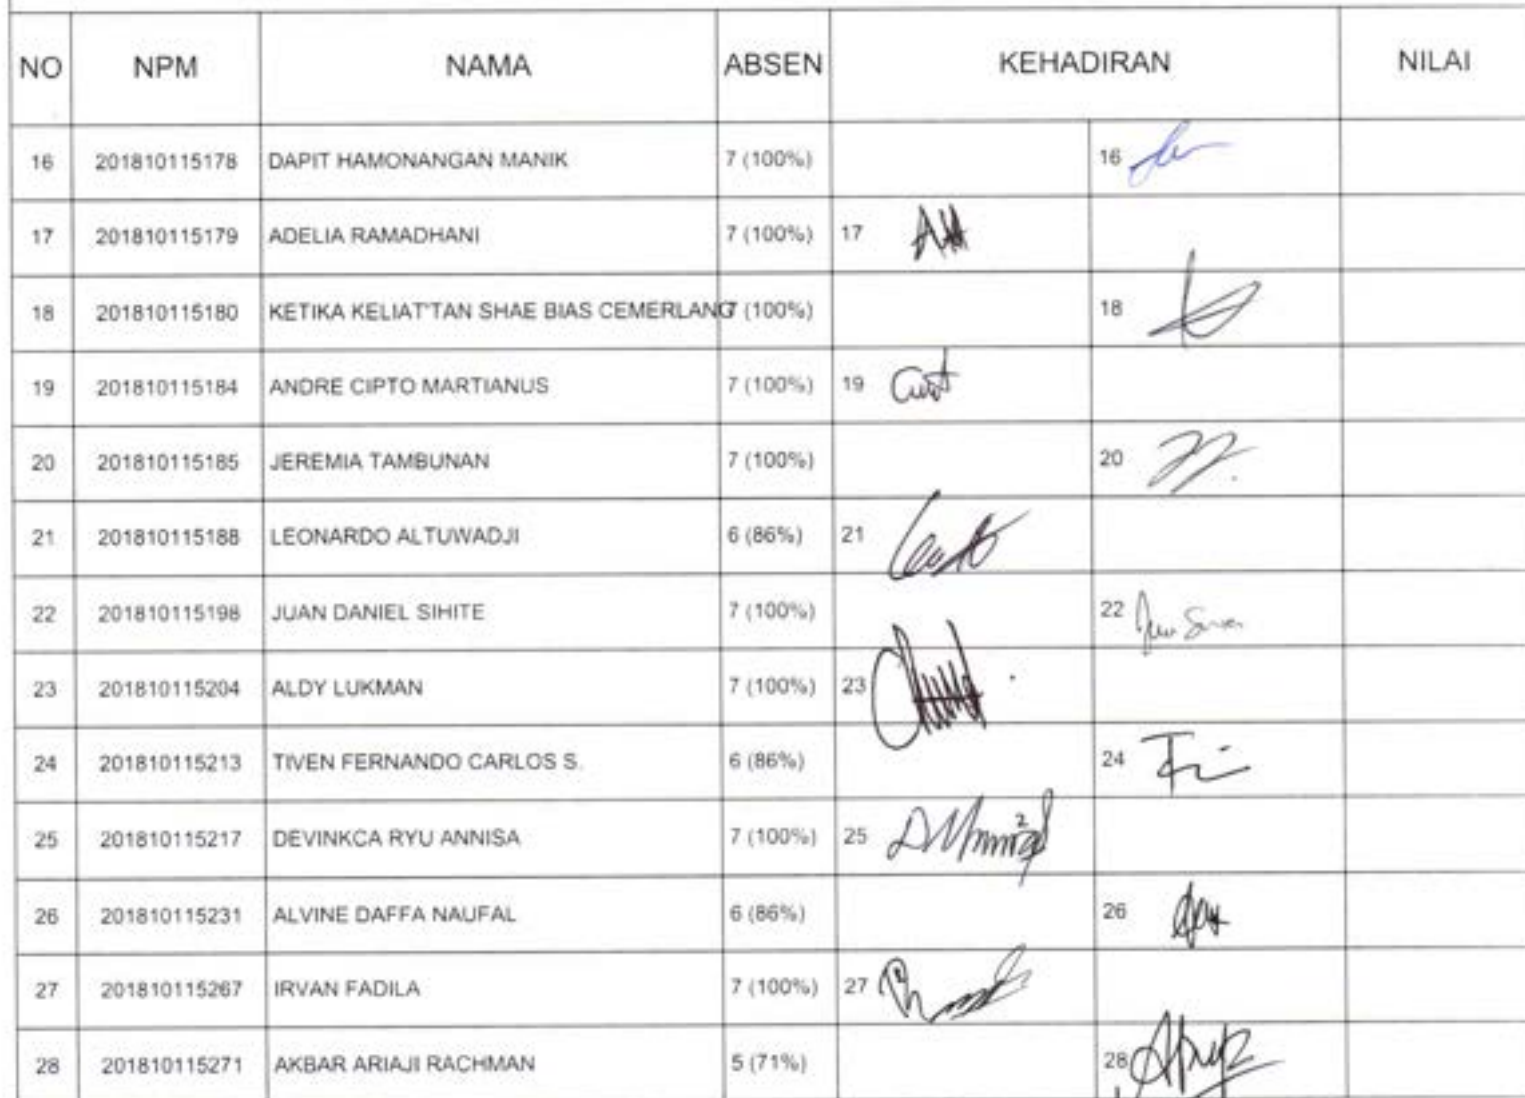 NO NPM NAMA ABSEN KEHADIRAN NILAI
16 201810115178 DAPIT HAMONANGAN MANIK 7 (100%) 16
17 201810115179 ADELIA RAMADHANI 7 (100%) 17
18 201810115180 KETIKA KELIAT'TAN SHAE BIAS CEMERLANG 7 (100%) 18
19 201810115184 ANDRE CIPTO MARTIANUS 7 (100%) 19
20 201810115185 JEREMIA TAMBUNAN 7 (100%) 20
21 201810115188 LEONARDO ALTUWADJI 6 (86%) 21
22 201810115198 JUAN DANIEL SIHITE 7 (100%) 22
23 201810115204 ALDY LUKMAN 7 (100%) 23
24 201810115213 TIVEN FERNANDO CARLOS S. 6 (86%) 24
25 201810115217 DEVINKCA RYU ANNISA 7 (100%) 25
26 201810115231 ALVINE DAFFA NAUFAL 6 (86%) 26
27 201810115267 IRVAN FADILA 7 (100%) 27
28 201810115271 AKBAR ARIAJI RACHMAN 5 (71%) 28